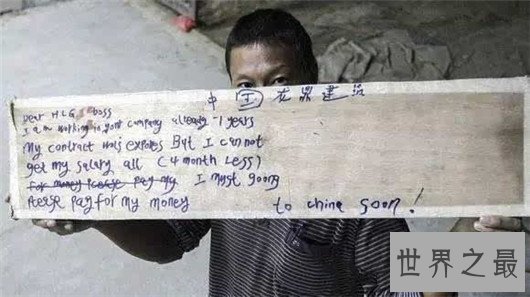 中国
Dear HLG boss
I am working in your company already 1 years
My contract was expores But I can not
get my salary all (4 month Less)
for money Please pay my I must goong
Please Pay for my money to china soon!
世界之最